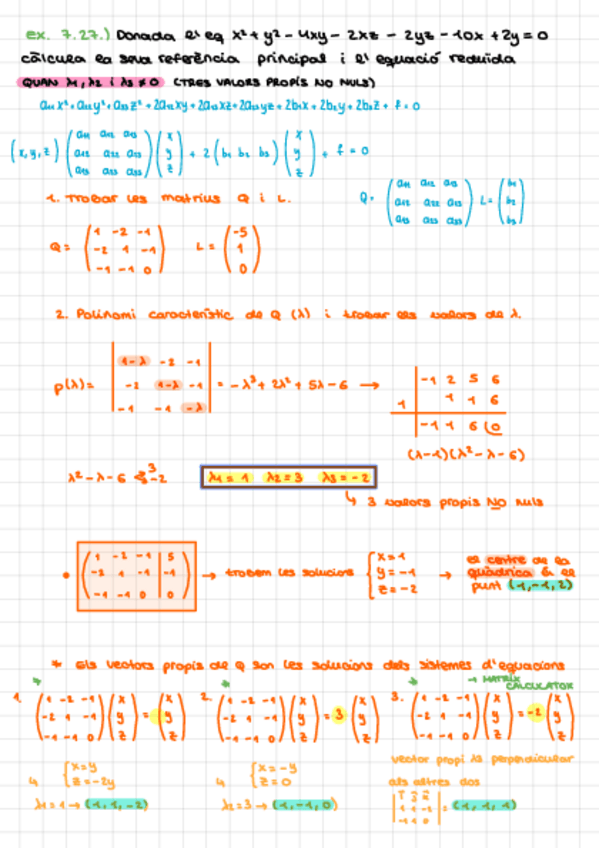 ex. 7.27.) Donada l'eq x² + y² - 4xy - 2xz - 2yz - 10x + 2y = 0
càlcula la seva referència principal i l'equació reduïda
QUAN λ1, λ2 i λ3 ≠ 0 (TRES VALORS PROPIS NO NULS)
a11 x² + a22 y² + a33 z² + 2a12 xy + 2a13 xz + 2a23 yz + 2b1 x + 2b2 y + 2b3 z + f = 0
(x, y, z) (a11 a12 a13 / a12 a22 a23 / a13 a23 a33) (x / y / z) + 2 (b1 b2 b3) (x / y / z) + f = 0
1. Trobar les matrius Q i L. Q = (a11 a12 a13 / a12 a22 a23 / a13 a23 a33) L = (b1 / b2 / b3)
Q = (1 -2 -1 / -2 1 -1 / -1 -1 0) L = (-5 / 1 / 0)
2. Polinomi característic de Q (λ) i trobar els valors de λ.
p(λ) = |1-λ -2 -1 / -2 1-λ -1 / -1 -1 -λ| = -λ³ + 2λ² + 5λ - 6 →
-1 2 5 6
1 1 1 6
-1 1 6 0
(λ-1)(λ² - λ - 6)
λ² - λ - 6 < 3 -2 λ1 = 1 λ2 = 3 λ3 = -2
↳ 3 valors propis NO nuls
• (1 -2 -1 | 5 / -2 1 -1 | -1 / -1 -1 0 | 0) → trobem les solucions { x = 1 / y = -1 / z = -2 →
el centre de la
quàdrica és el
punt (1, -1, 2)
* Els vectors propis de Q son les solucions dels sistemes d'equacions
→ MATRIX CALCULATOR
1. (1 -2 -1 / -2 1 -1 / -1 -1 0) (x / y / z) = (x / y / z)
2. (1 -2 -1 / -2 1 -1 / -1 -1 0) (x / y / z) = 3 (x / y / z)
3. (1 -2 -1 / -2 1 -1 / -1 -1 0) (x / y / z) = -2 (x / y / z)
↳ { x = y / z = -2y
λ1 = 1 → (1, 1, -2)
↳ { x = -y / z = 0
λ2 = 3 → (1, -1, 0)
vector propi λ3 perpendicular
als altres dos
= (1, 1, 1)